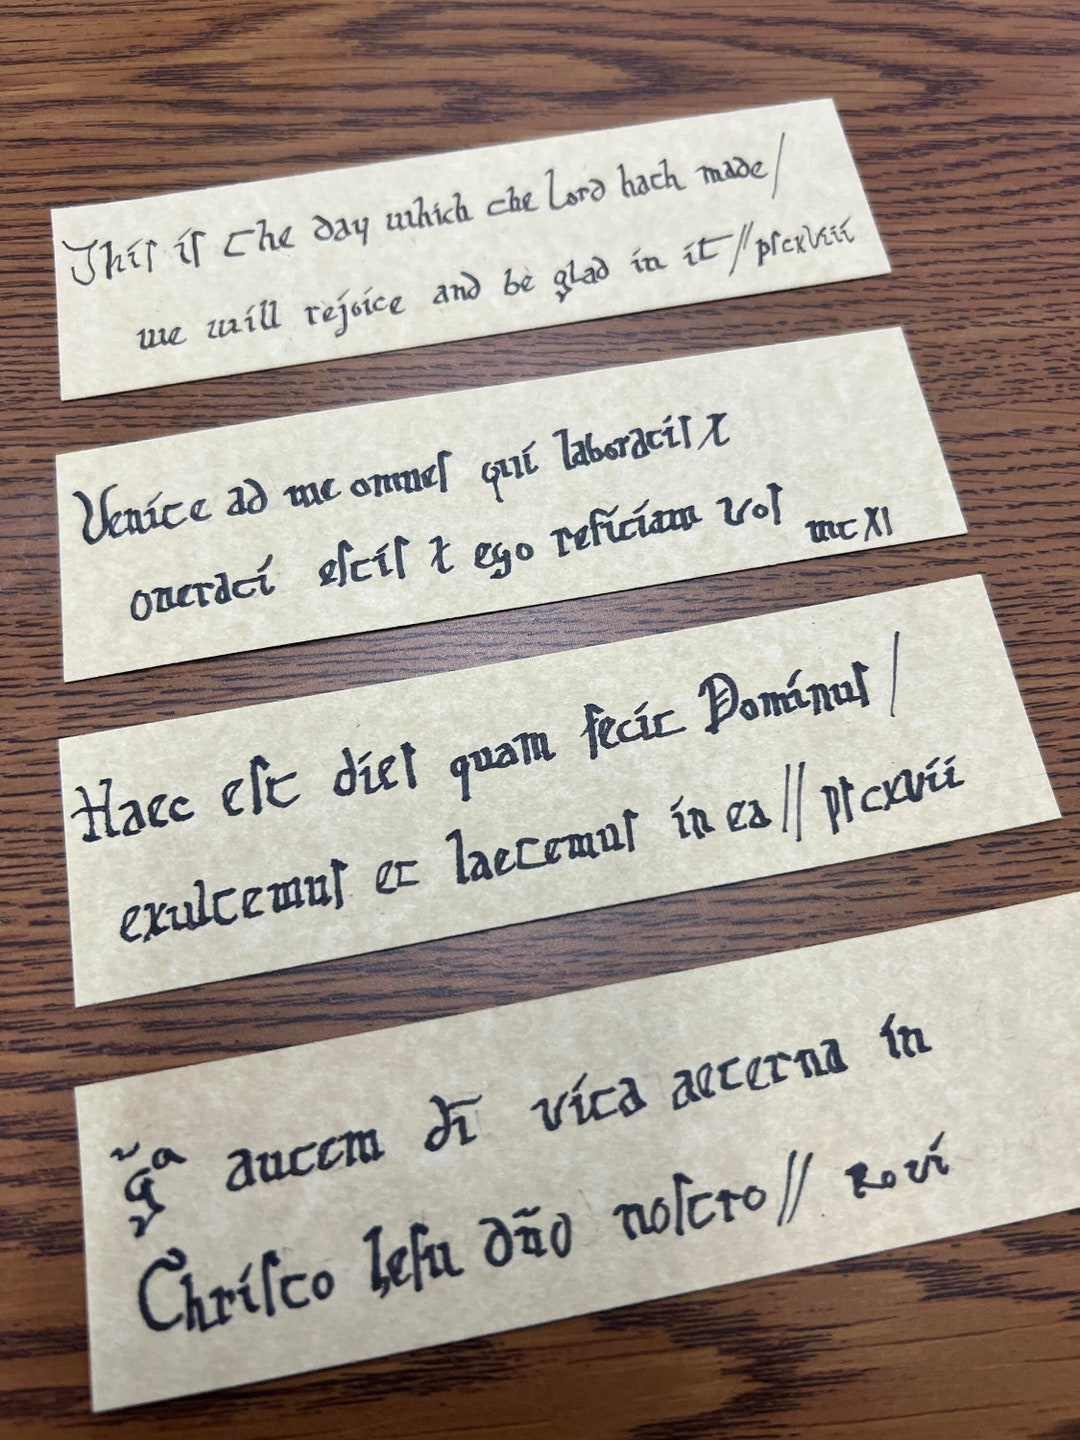 Thiſ iſ the day which the Lord hath made /
we will rejoice and be glad in it // pſcxviii
Venite ad me omneſ qui laboratiſ ⁊
onerati eſtiſ ⁊ ego reficiam voſ mt XI
Haec eſt dieſ quam fecit Dominuſ /
exultemuſ et laetemuſ in ea // pſcxvii
g̃ᵃ autem dī vita aeterna in
Chriſto Ieſu dño noſtro // Ro vi